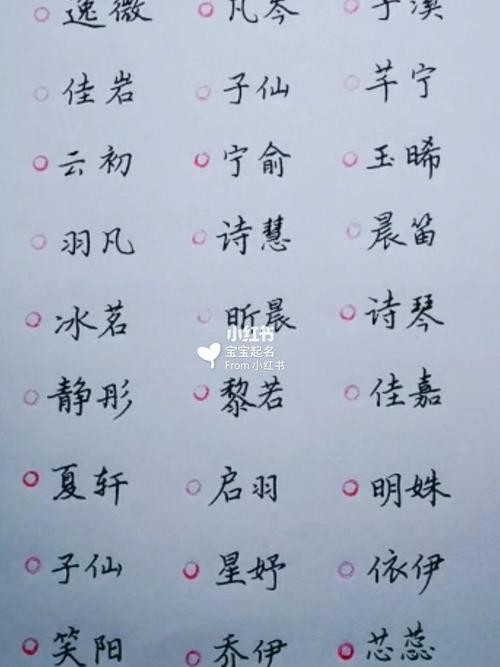 逸微 凡岑 子溪
佳岩 子仙 芊宁
云初 宁俞 玉晞
羽凡 诗慧 晨笛
冰茗 昕晨 诗琴
小红书
宝宝起名
From 小红书
静彤 黎若 佳嘉
夏轩 启羽 明姝
子仙 星妤 依伊
笑阳 乔伊 芯蕊